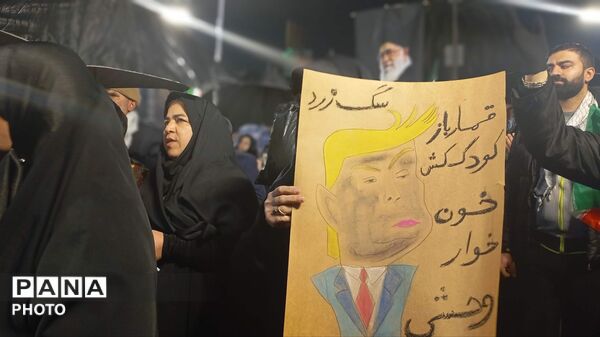 سگ زرد
قمارباز
کودک کش
خون
خوار
وحشی
PANA
PHOTO